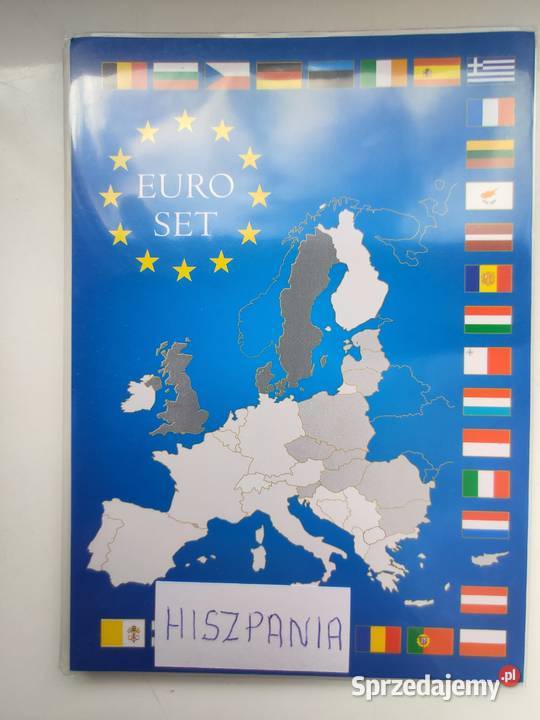 EURO
SET
HISZPANIA
Sprzedajemy.pl